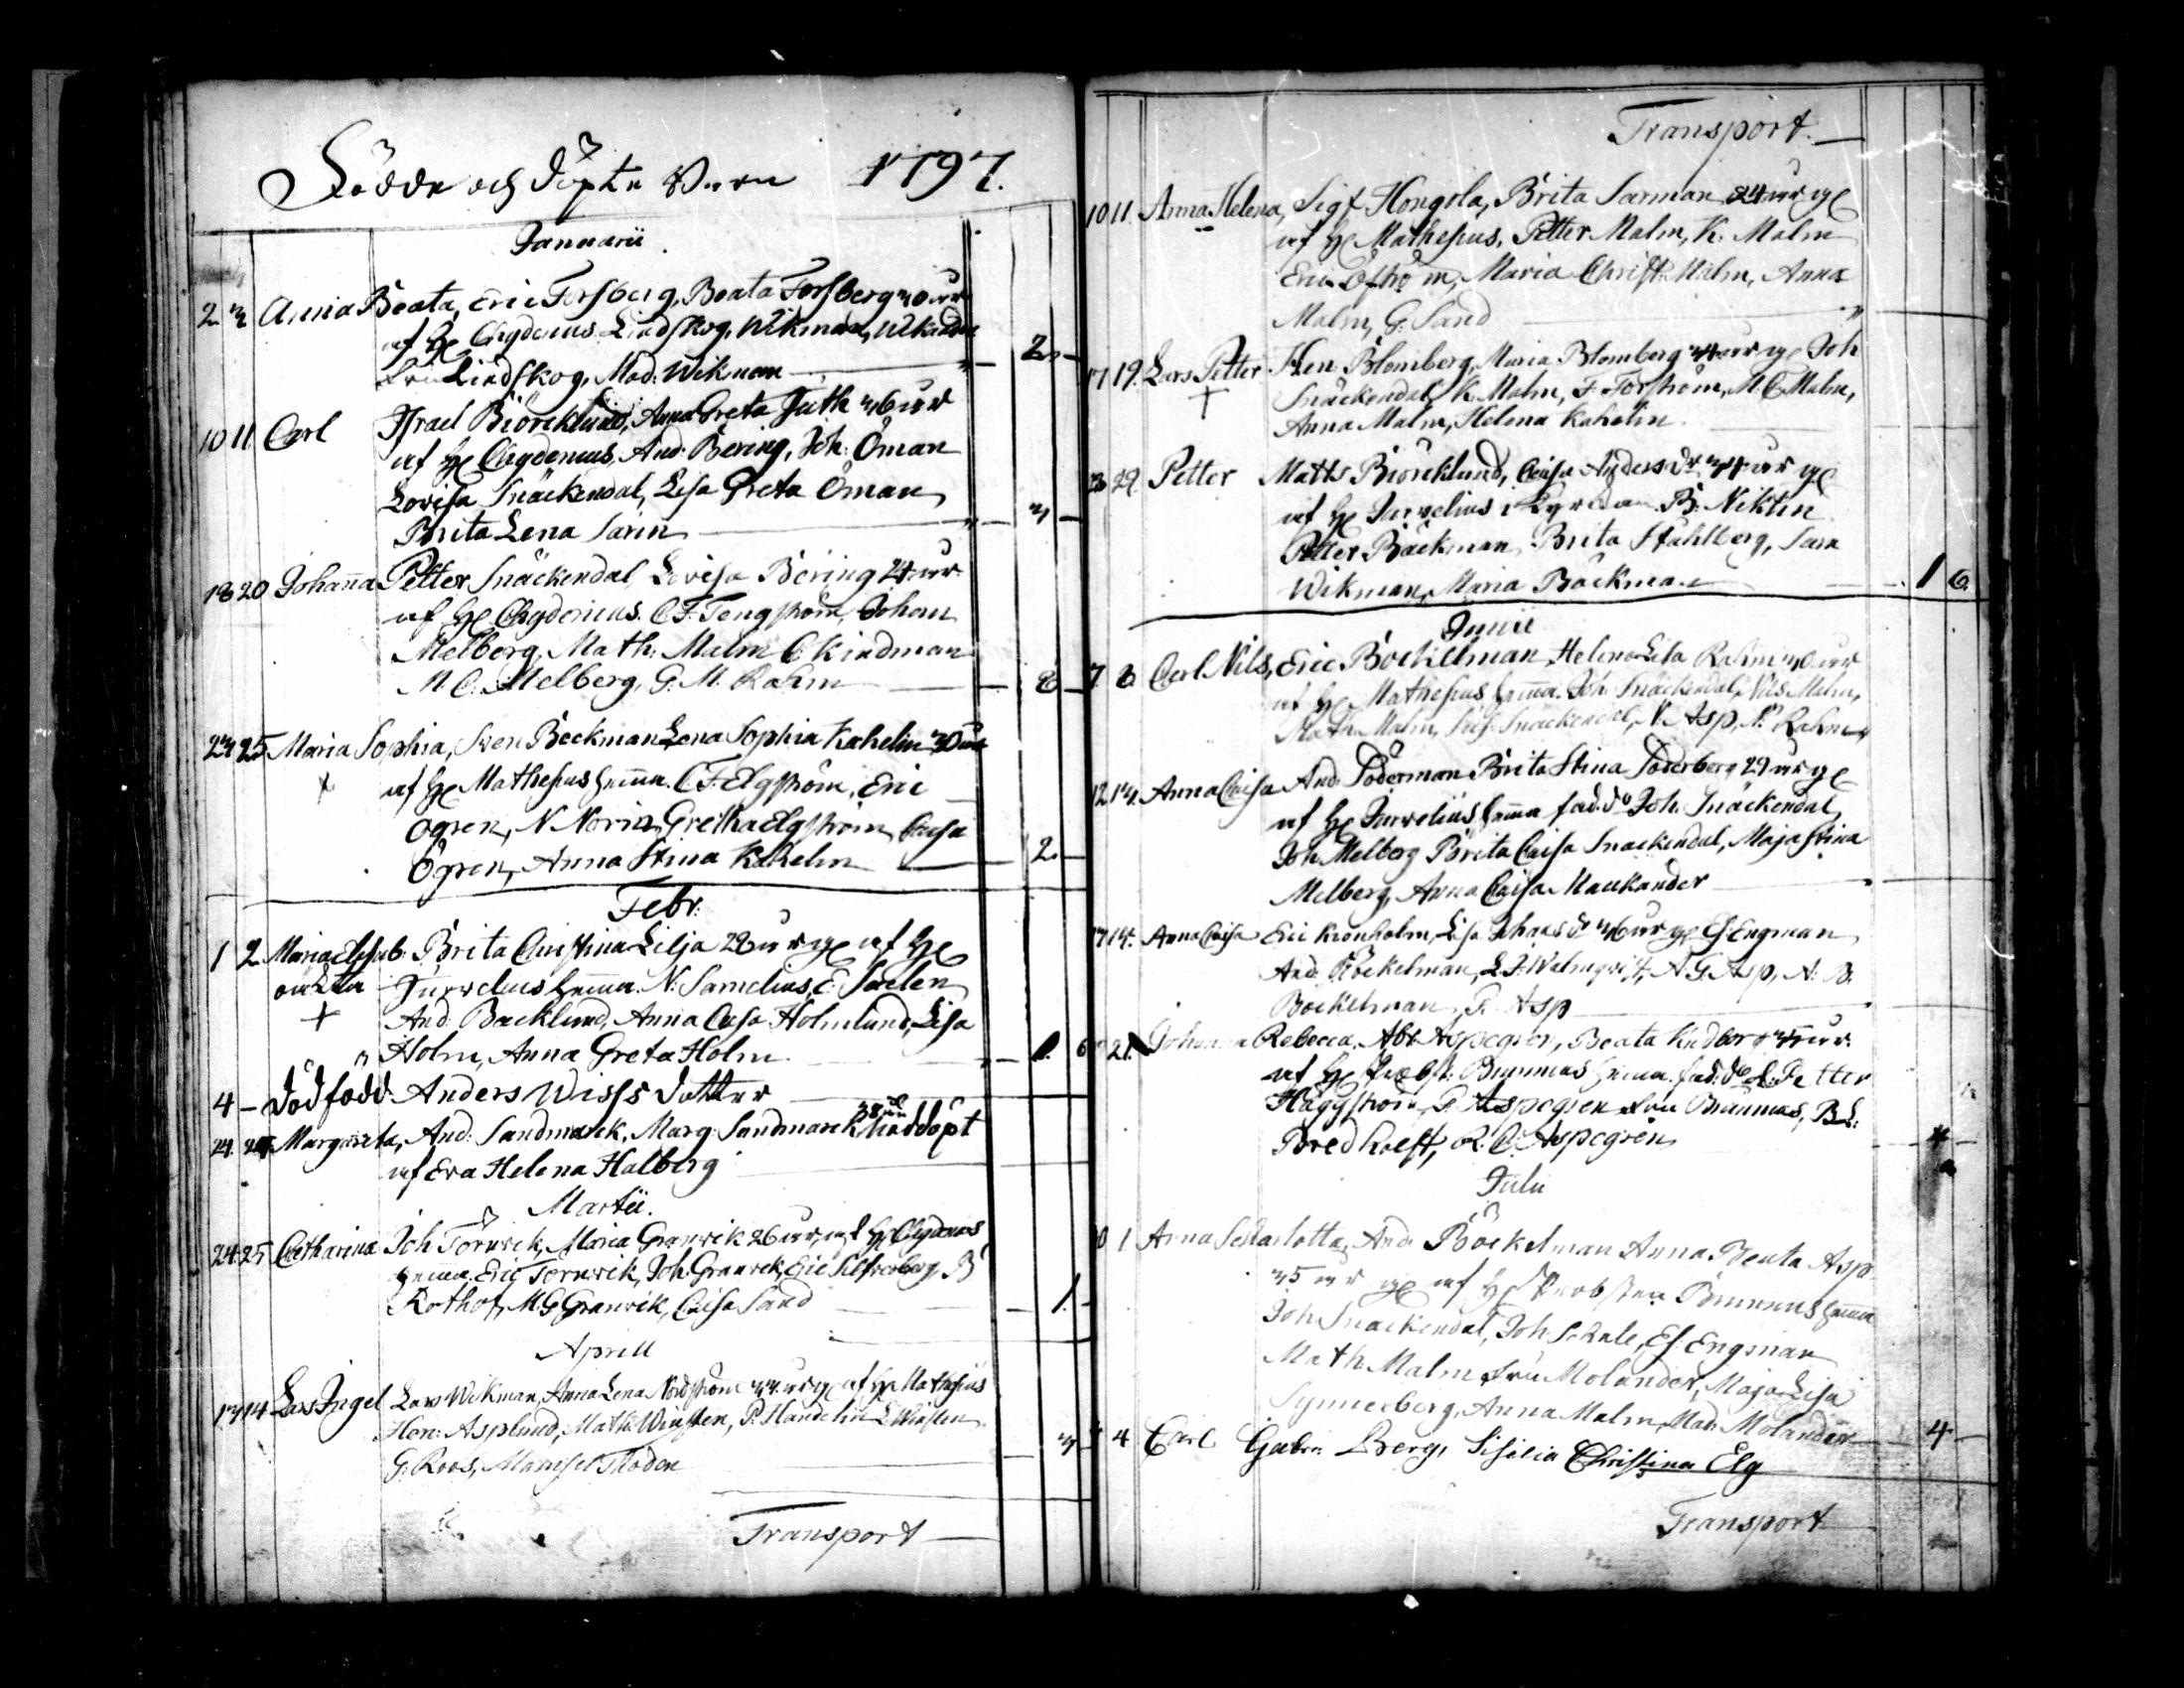 Födde och döpte Barn 1797.
Januarii
2 3 Anna Beata, Eric Forsberg, Beata Forsberg 30 år
af H Chydenius Lindskog, Wikman, Wikman
Fru Lindskog, Mad: Wikman 2
10 11 Carl Israel Biörcklund, Anna Greta Juth 36 år
af H Chydenius, And: Bering, Joh: Öman
Lovisa Snäckendal, Lisa Greta Öman
Brita Lena Sarin 3
18 20 Johanna Petter Snäckendal Lovisa Bering 24 år
af H Chydenius. C. F. Tengström, Johan
Melberg, Math: Malm C Kindman
M. C. Melberg, G: M. Rahm 8
23 25 Maria Sophia, Sven Beckman Lena Sophia Kahelin 30 år
af H Mathesius hema. C. F. Elgström, Eric
Ögren, N Norin, Gretha Elgström, Caisa
Ögren, Anna Stina Kahelin 2
Febr:
1 2 Maria Elisab: Brita Christina Lilja 28 år af H
oäkta Jurvelius hema. N: Samelius, E:
+ And: Backlund, Anna Caisa Holmlund, Lisa
Holm, Anna Greta Holm 1. 6
4 - Dödfödd Anders Wisss dotter
24. Margareta, And: Sandmarck, Marg: Sandmarck 38 år nöddöpt
af Eva Helena Halberg
Martii.
24 25 Catharina Joh Törnvik, Maria Granvik 26 år, af H Chydenius
hema. Eric Törnvik, Joh: Granvik, Eric Silfverberg, B
Rothof, M G Granvik, Caisa Sand 1
Aprill
13 14 Lars Ingel Lars Wikman, Anna Lena Nordström 34 år af H Mathesius
Hen: Asplund, Math: Winsten, P. Handelin L Winsten
G. Roos, Mamsel Thoden 3
Transport
Transport
10 11. Anna Helena, Sigf Hongola, Brita Sarman 24 år
af H Mathesius, Petter Malm, K. Malm
Eric Öström, Maria Christ: Malm, Anna
Malm, G: Sand
17 19. Lars Petter Hen: Blomberg, Maria Blomberg 34 år Joh
+ Snäckendal, K. Malm, F. Forström, M. C. Malm,
Anna Malm, Helena Kahelin
28 29. Petter Matts Biörcklund, Caisa Andersdr 34 år
af H Jurvelius i Kyrckan B: Niklin
Petter Bäckman, Brita Ståhlberg, Sara
Wikman, Maria Bäckman 1 6.
Junii
7. 8 Carl Nils, Eric Böckelman, Helena Lisa Rahm 30 år
af H Mathesius hema. Joh: Snäckendal, Nils Malm,
Math: Malm, Snäckendal, N. Asp, Rahm
12 13. Anna Caisa And: Söderman Brita Stina Söderberg 29 år
af H Jurvelius hema fadd: Joh: Snäckendal,
Joh Melberg Brita Caisa Snäckendal, Maja Stina
Melberg, Anna Caisa
13 14. Anna Caisa Eric Kronholm, Lisa Johansdr 36 år Es Engman
And: Böckelman, L J: Walmqvist, A G Asp, A: B.
Böckelman, P. Asp
21. Johanna Rebecca, Abr: Aspegren, Beata 35 år
af H Probst: Brunnius hema. fadd: L: Petter
Häggström, P: Aspegren Fru Brunnius, B L:
Bredholft, R. C. Aspegren 4
Julii
1 Anna Scharlotta, And: Böckelman Anna Beata Asp
35 år af H Probsten Brunnius hema
Joh: Snäckendal, Joh: Es: Engman
Math Malm Fru Molander, Maja Lisa
Synnerberg, Anna Malm, Mad: Molander 4
4 Carl Gabr: Berg, Sisilia Christina Elg
Transport